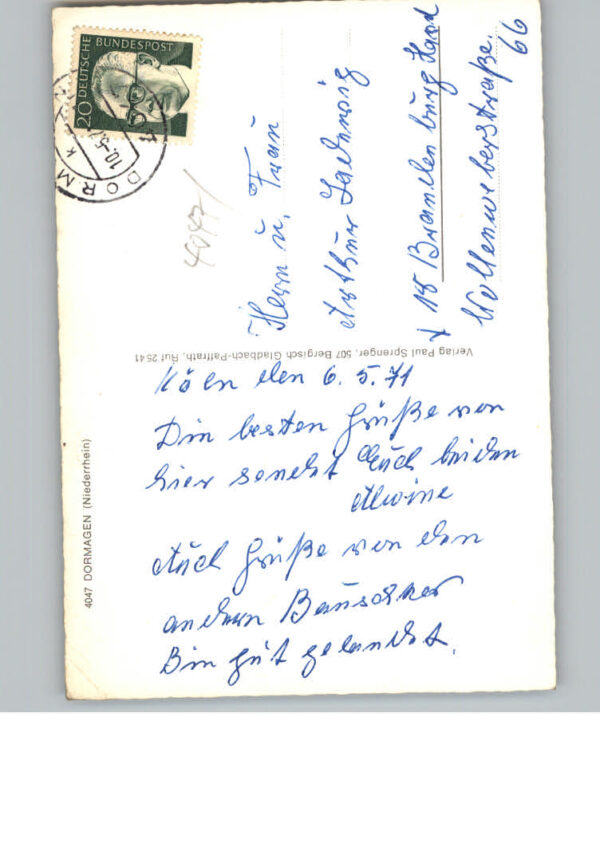 DEUTSCHE
BUNDESPOST
20
DORM
10.5.7
4047
Herrn u. Frau
Arthur Ladewig
X 18 Brandenburg Havd
Wollenweberstraße.
66
Verlag Paul Sprenger, 507 Bergisch Gladbach-Paffrath, Ruf 2541
4047 DORMAGEN (Niederrhein)
Köln den 6. 5. 71
Die besten Grüße von
hier sendet Euch beiden
Alwine
Auch Grüße von den
andern
Bin gut gelandet.